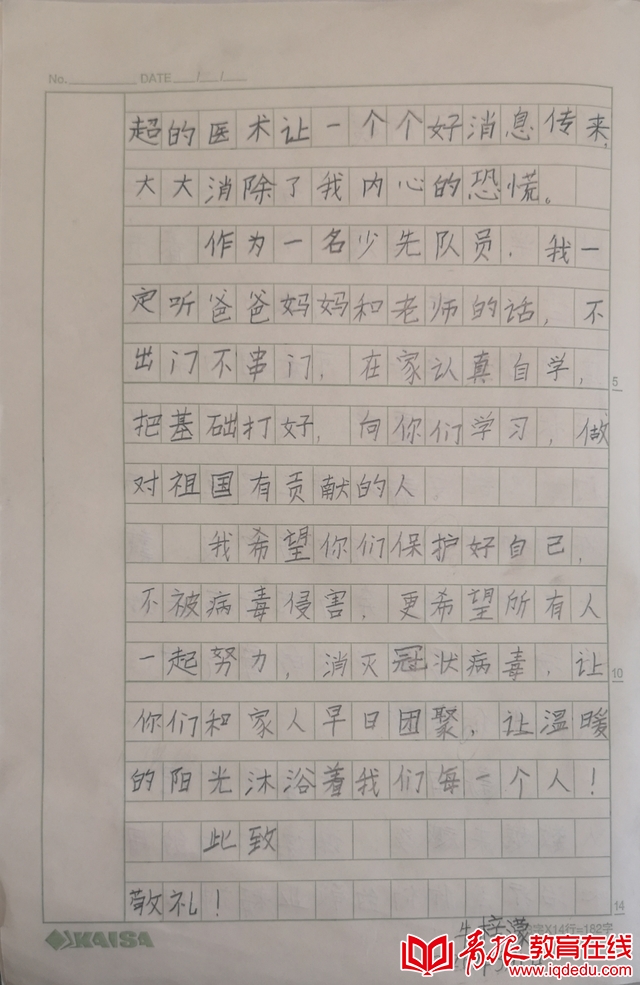 No. DATE / /
超的医术让一个个好消息传来,
大大消除了我内心的恐慌。
作为一名少先队员,我一
定听爸爸妈妈和老师的话,不
出门不串门,在家认真自学,
5
把基础打好,向你们学习,做
对祖国有贡献的人
我希望你们保护好自己,
不被病毒侵害,更希望所有人
一起努力,消灭冠状病毒,让
10
你们和家人早日团聚,让温暖
的阳光沐浴着我们每一个人!
此致
敬礼!
14
KAISA
字X14行=182字
青报教育在线
www.iqdedu.com